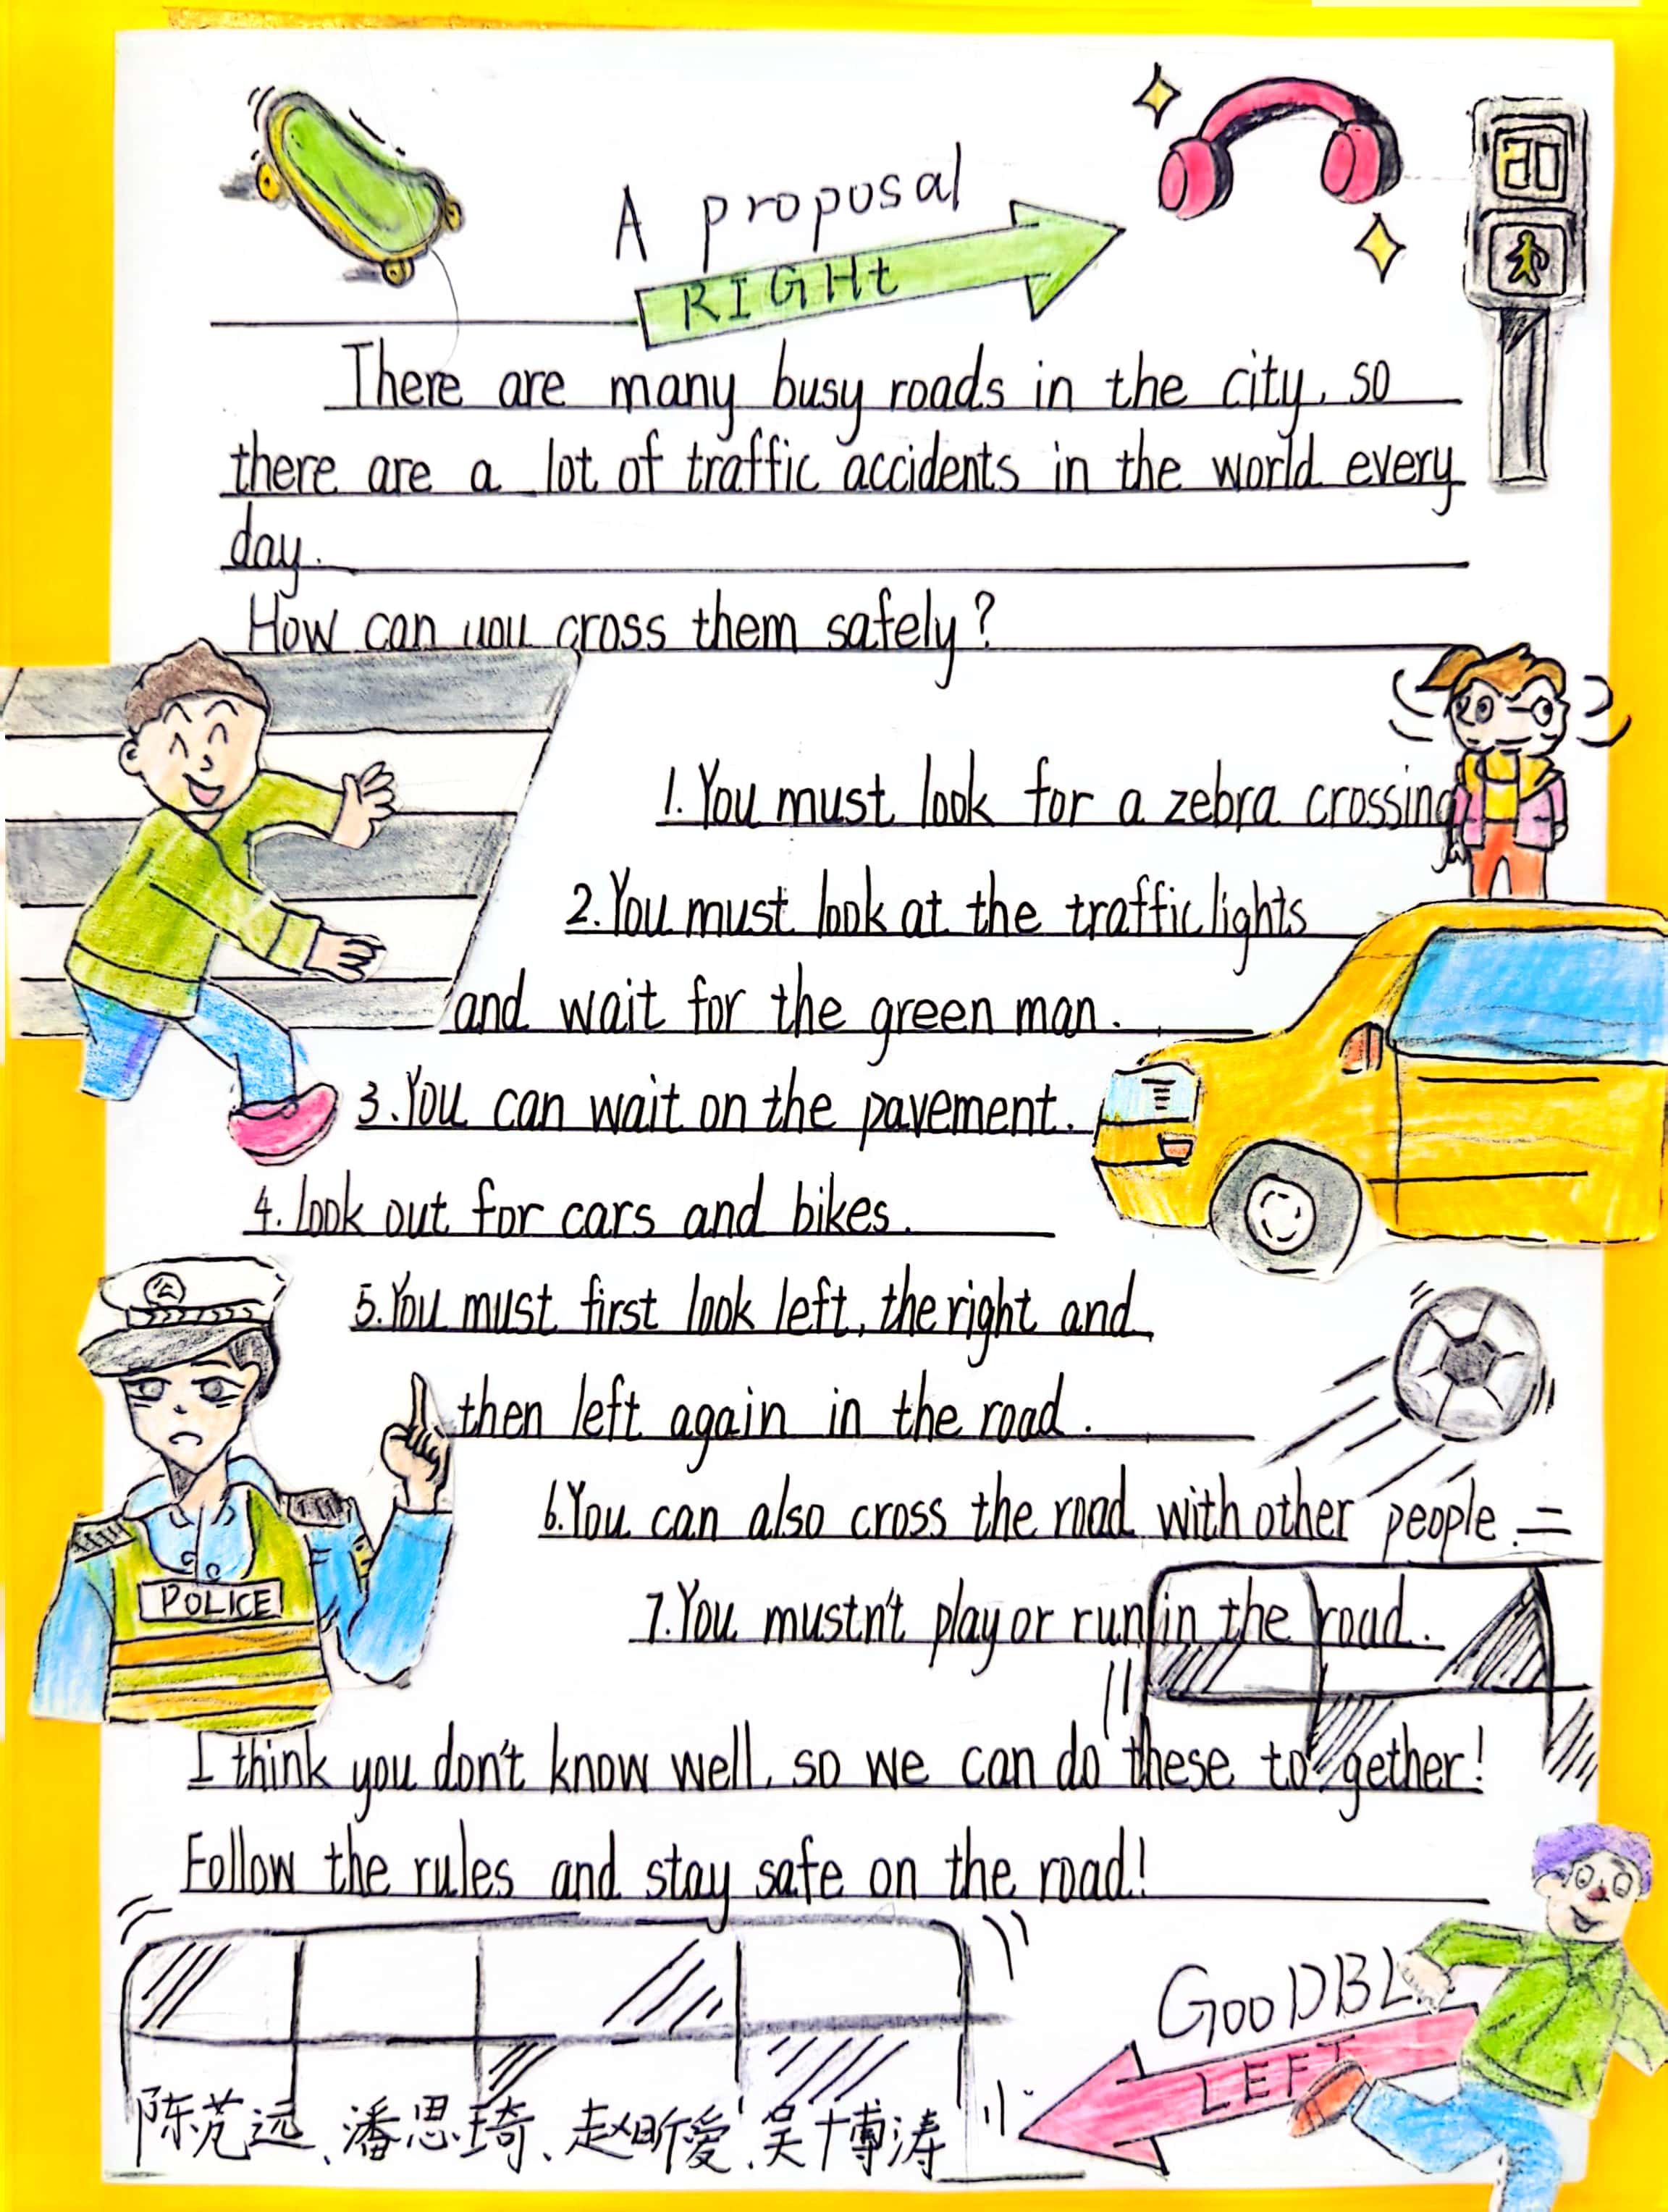 20
A proposal
RIGHt
There are many busy roads in the city, so
there are a lot of traffic accidents in the world every
day.
How can you cross them safely?
1. You must look for a zebra crossing
2. You must look at the traffic lights
and wait for the green man.
3. You can wait on the pavement.
4. look out for cars and bikes.
5. You must first look left, the right and
then left again in the road.
6. You can also cross the road with other people.
7. You mustn't play or run in the road.
POLICE
I think you don't know well, so we can do these together!
Follow the rules and stay safe on the road!
GooDB
LEFT
陈苋远、潘思琦、赵昕愛、吴博涛